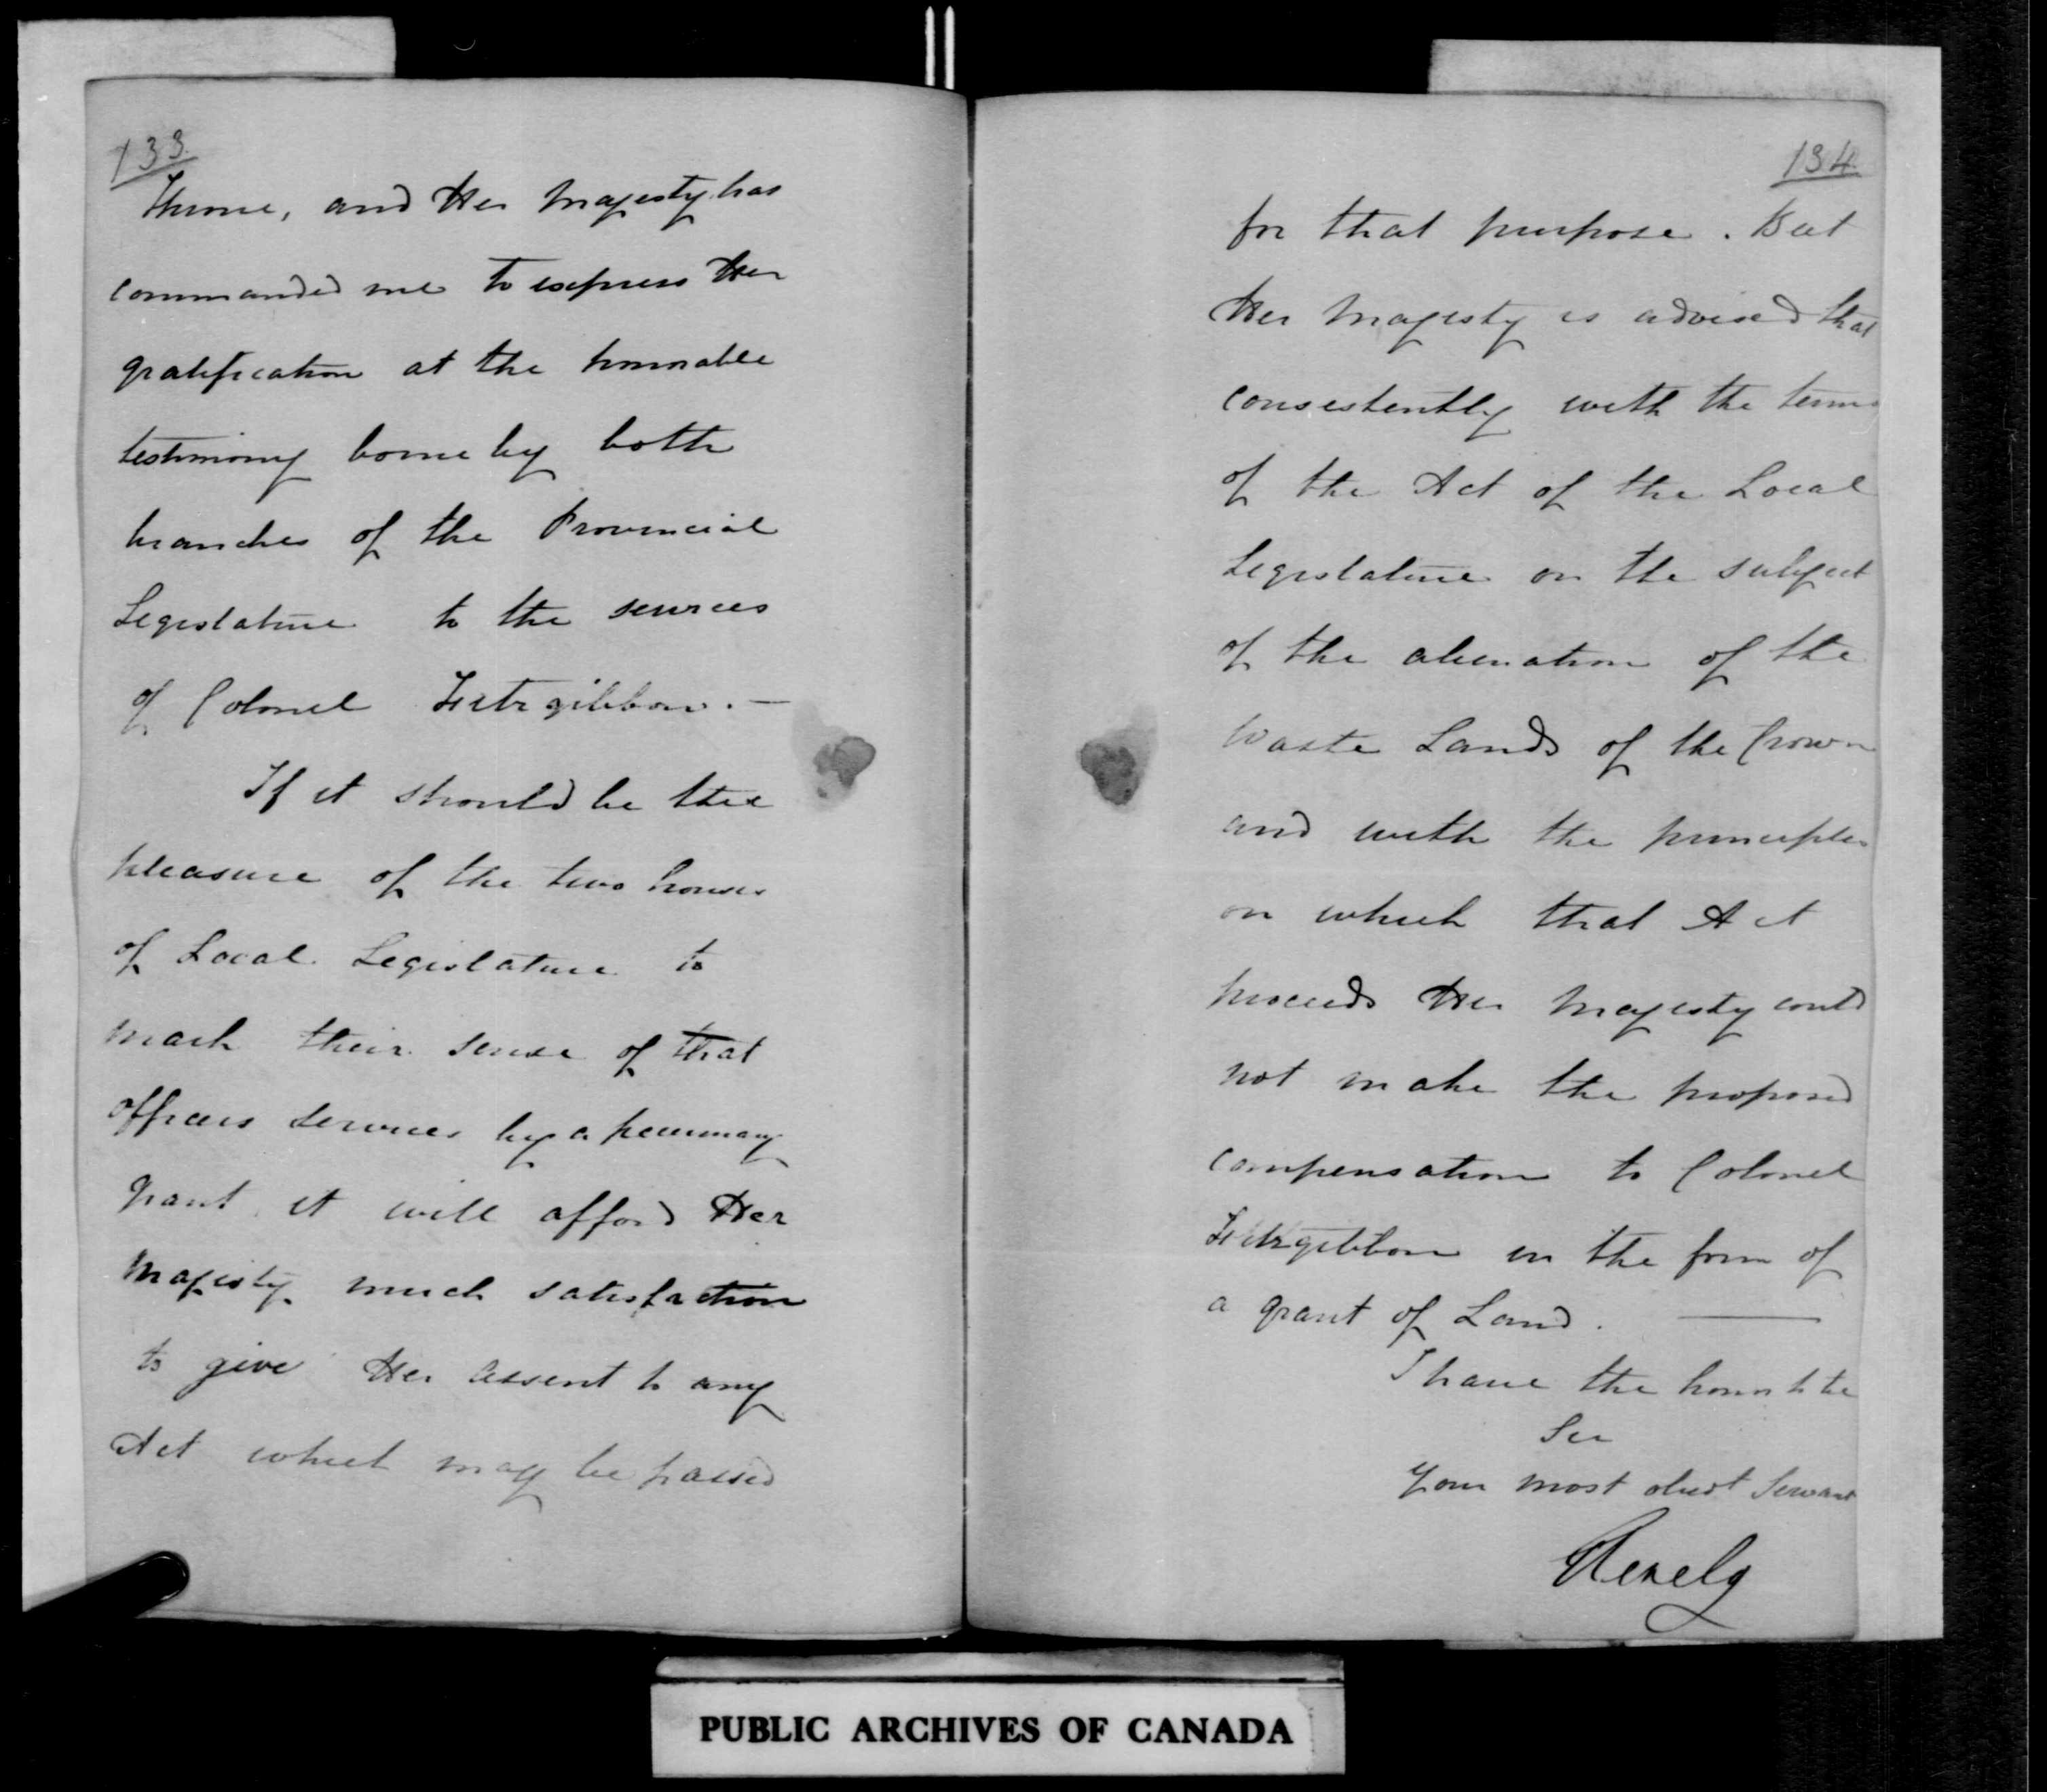 133.
Throne, and Her Majesty has
commanded me to express Her
gratification at the honorable
testimony borne by both
branches of the Provincial
Legislature to the services
of Colonel Fitzgibbon. —
If it should be the
pleasure of the two houses
of Local Legislature to
mark their sense of that
officers services by a pecuniary
grant it will afford Her
Majesty much satisfaction
to give Her assent to any
Act which may be passed
134.
for that purpose. But
Her Majesty is advised that
consistently with the terms
of the Act of the Local
Legislature on the subject
of the alienation of the
Waste Lands of the Crown
and with the principles
on which that Act
proceeds Her Majesty could
not make the proposed
compensation to Colonel
Fitzgibbon in the form of
a grant of Land. —
I have the honor to be
Sir
Your most obedt Servant
Glenelg
PUBLIC ARCHIVES OF CANADA